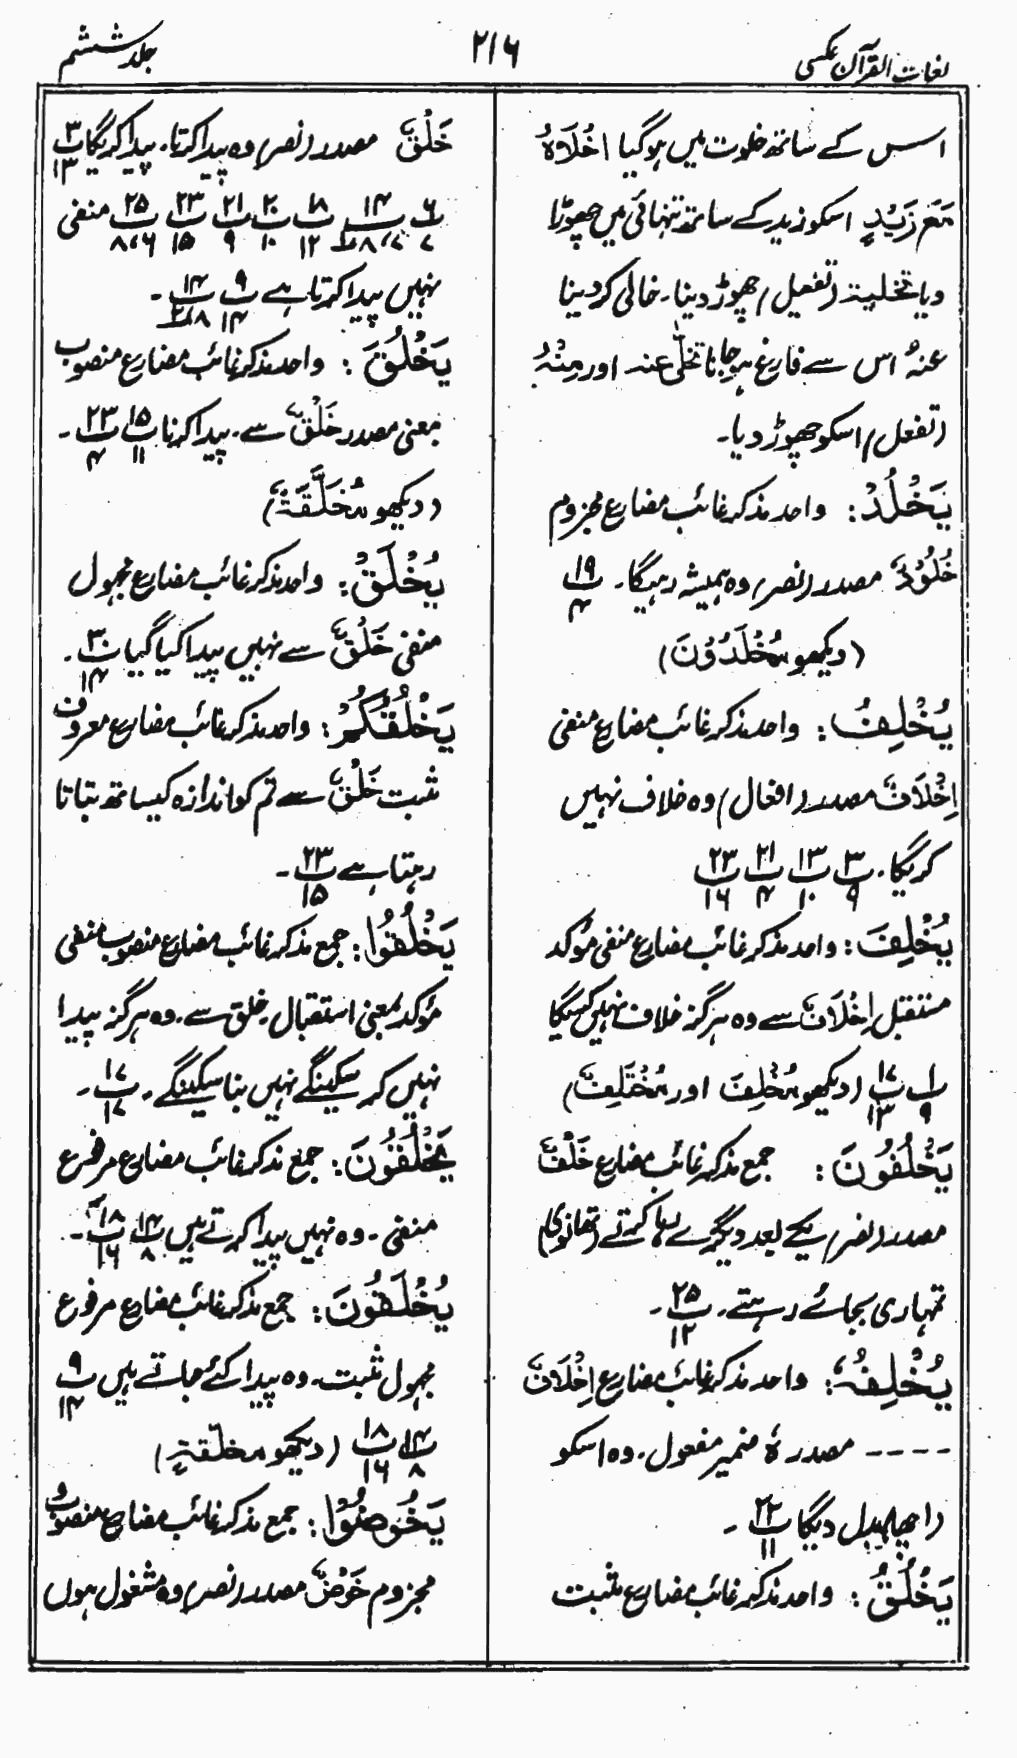 لغات القرآن عکسی
۲۱۶
جلد ششم
اس کے ساتھ خلوت میں ہو گیا اَخْلَاہُ
مَعَ زَیْدٍ اسکو زید کے ساتھ تنہائی میں چھوڑا
دیا تخلیۃ (تفعیل) چھوڑ دینا۔ خالی کر دینا
عنہُ اس سے فارغ ہو جانا تخلّٰی عنہ اور مِنْہُ
(تفعل) اسکو چھوڑ دیا۔
یَخْلُدْ: واحد مذکر غائب مضارع مجزوم
خُلُوْدٌ مصدر (نصر) وہ ہمیشہ رہیگا۔ پ۱۹/۴
(دیکھو مُخْلَدُوْنَ)
یُخْلِفُ: واحد مذکر غائب مضارع منفی
اِخْلَافٌ مصدر (افعال) وہ خلاف نہیں
کریگا۔ پ۳/۹ پ۱۳/۱۰ پ۲۱/۴ پ۲۳/۱۶
یُخْلِفَ: واحد مذکر غائب مضارع منفی مؤکد
مستقبل اِخْلَافٌ سے وہ ہرگز خلاف نہیں کریگا
پ۱/۹ پ۱۷/۱۳ (دیکھو مُخْلِفَ اور مُخْتَلِفٌ)
یَخْلُفُوْنَ: جمع مذکر غائب مضارع خَلْفٌ
مصدر (نصر) یکے بعد دیگرے رہا کرتے (تھانوی)
تمہاری بجائے رہتے۔ پ۲۵/۱۲۔
یُخْلِفُہٗ: واحد مذکر غائب مضارع اِخْلَافٌ
---- مصدر ہٗ ضمیر مفعول۔ وہ اسکو
(اچھا) بدل دیگا پ۲۲/۱۱۔
یَخْلُقُ: واحد مذکر غائب مضارع مثبت
خَلْقٌ مصدر (نصر) وہ پیدا کرتا۔ پیدا کریگا پ۳/۱۳
پ۶/۷ پ۱۴/۷،۸ پ۱۸/۱۲ پ۲۰/۱۰ پ۲۱/۹ پ۲۳/۱۵ پ۲۵/۸،۶ منفی
نہیں پیدا کرتا ہے پ۹/۱۴ پ۱۴/۸۔
یَخْلُقَ: واحد مذکر غائب مضارع منصوب
بمعنی مصدر خَلْقٌ سے۔ پیدا کرنا پ۱۵/۱۱ پ۲۳/۴۔
(دیکھو مُخَلَّقَۃٌ)
یُخْلَقْ: واحد مذکر غائب مضارع مجہول
منفی خَلْقٌ سے نہیں پیدا کیا گیا پ۳۰/۱۴۔
یَخْلُقُکُمْ: واحد مذکر غائب مضارع معروف
مثبت خَلْقٌ سے تم کو اندازہ کیساتھ بناتا
رہتا ہے پ۲۳/۱۵۔
یَخْلُقُوْا: جمع مذکر غائب مضارع منصوب منفی
مؤکد بمعنی استقبال۔ خلق سے۔ وہ ہرگز پیدا
نہیں کر سکینگے نہیں بنا سکینگے۔ پ۱۷/۱۷۔
یَخْلُقُوْنَ: جمع مذکر غائب مضارع مرفوع
منفی۔ وہ نہیں پیدا کرتے ہیں پ۱۴/۸ پ۱۸/۱۶۔
یُخْلَقُوْنَ: جمع مذکر غائب مضارع مرفوع
مجہول مثبت۔ وہ پیدا کئے جاتے ہیں پ۹/۱۴
پ۱۴/۸ پ۱۸/۱۶ (دیکھو مخلّقۃٍ)
یَخُوْضُوْا: جمع مذکر غائب مضارع منصوب و
مجزوم خَوْضٌ مصدر (نصر) وہ مشغول ہوں